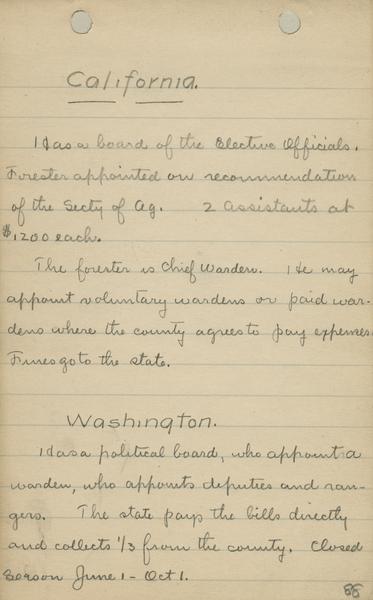 California.
Has a board of the Elective Officials.
Forester appointed on recommendation
of the Secty of Ag. 2 assistants at
$1200 each.
The forester is Chief Warden. He may
appoint voluntary wardens or paid war-
dens where the county agrees to pay expenses
Fines go to the state.
Washington.
Has a political board, who appoint a
warden, who appoints deputies and ran-
gers. The state pays the bills directly
and collects 1/3 from the county. Closed
season June 1 - Oct 1.